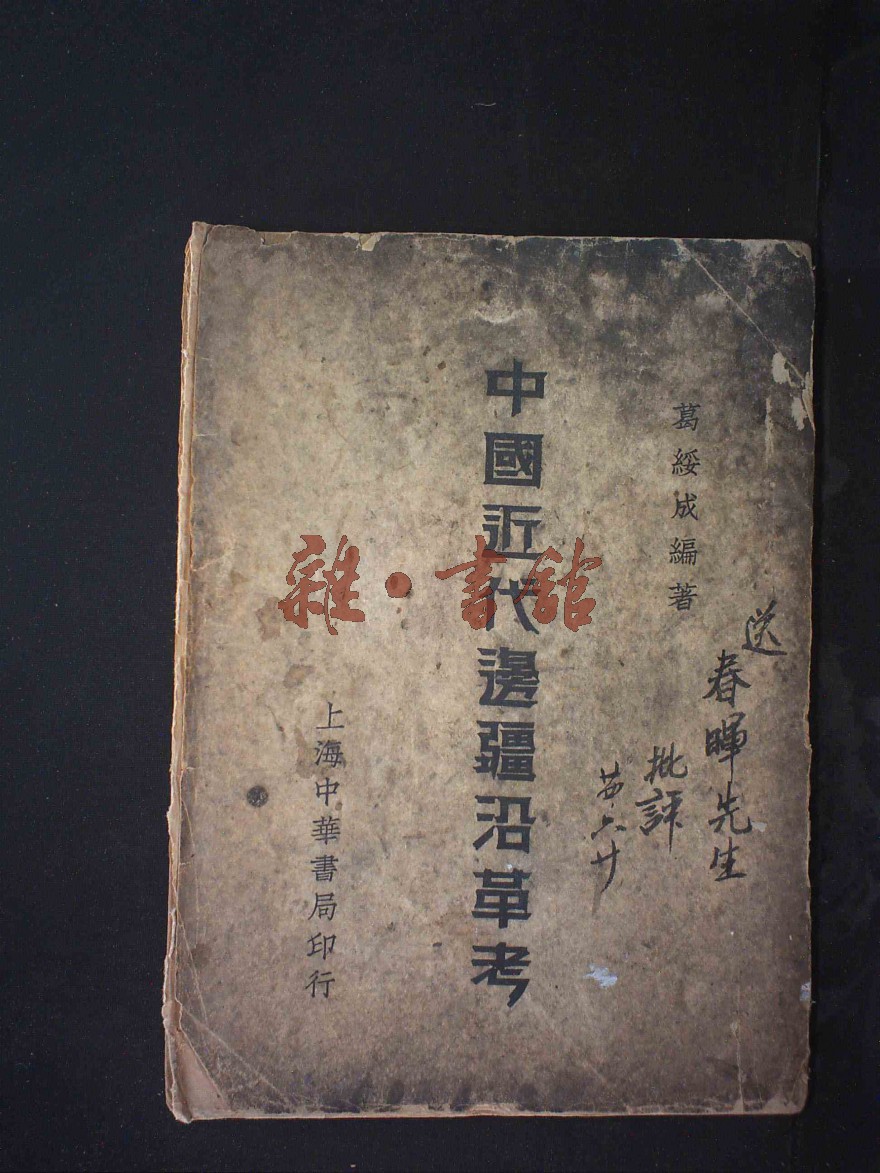 葛綏成編著
送
春暉先生
批評
廿六廿
中國近代邊疆沿革考
上海中華書局印行
雜·書館